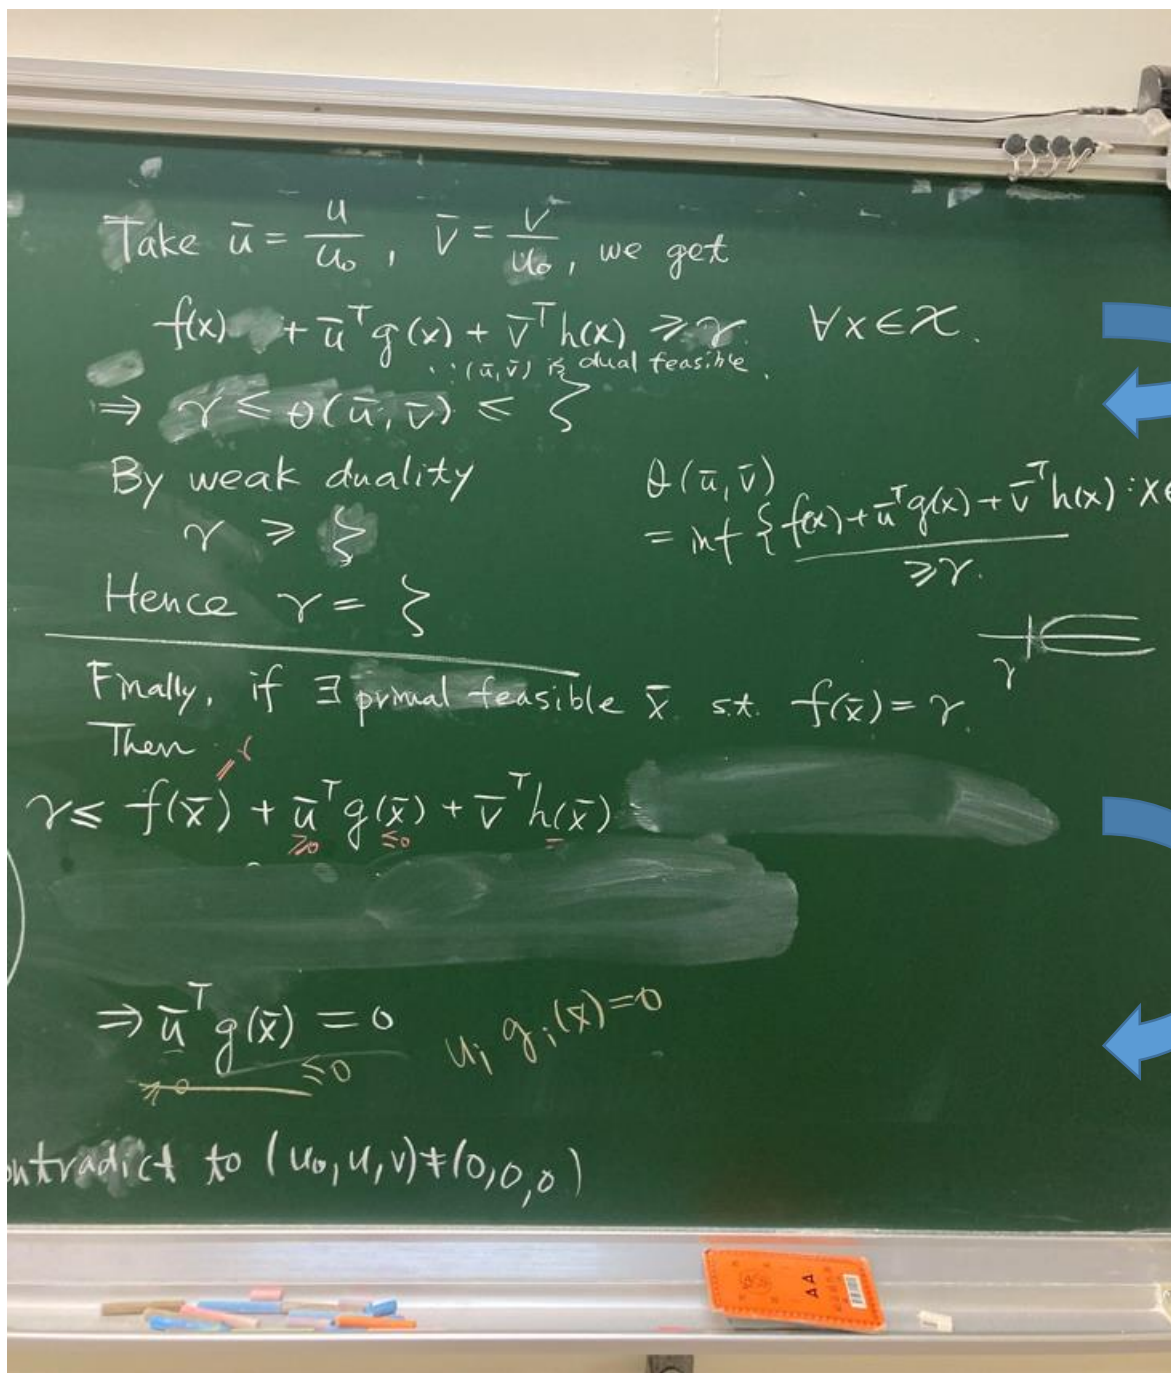 Take ū = u/u₀, v̄ = v/u₀, we get
f(x) + ūᵀg(x) + v̄ᵀh(x) ≥ γ. ∀x∈X.
∵(ū,v̄) is dual feasible.
⇒ γ ≤ θ(ū,v̄) ≤ ξ
By weak duality
γ ≥ ξ
Hence γ = ξ
θ(ū,v̄)
= inf {f(x)+ūᵀg(x)+v̄ᵀh(x) : x∈
≥γ.
γ
Finally, if ∃ primal feasible x̄ s.t. f(x̄) = γ.
Then
= γ
γ ≤ f(x̄) + ūᵀg(x̄) + v̄ᵀh(x̄)
≥0 ≤0 =
⇒ ūᵀg(x̄) = 0 uᵢ gᵢ(x̄)=0
≥0 ≤0
ontradict to (u₀,u,v)≠(0,0,0)